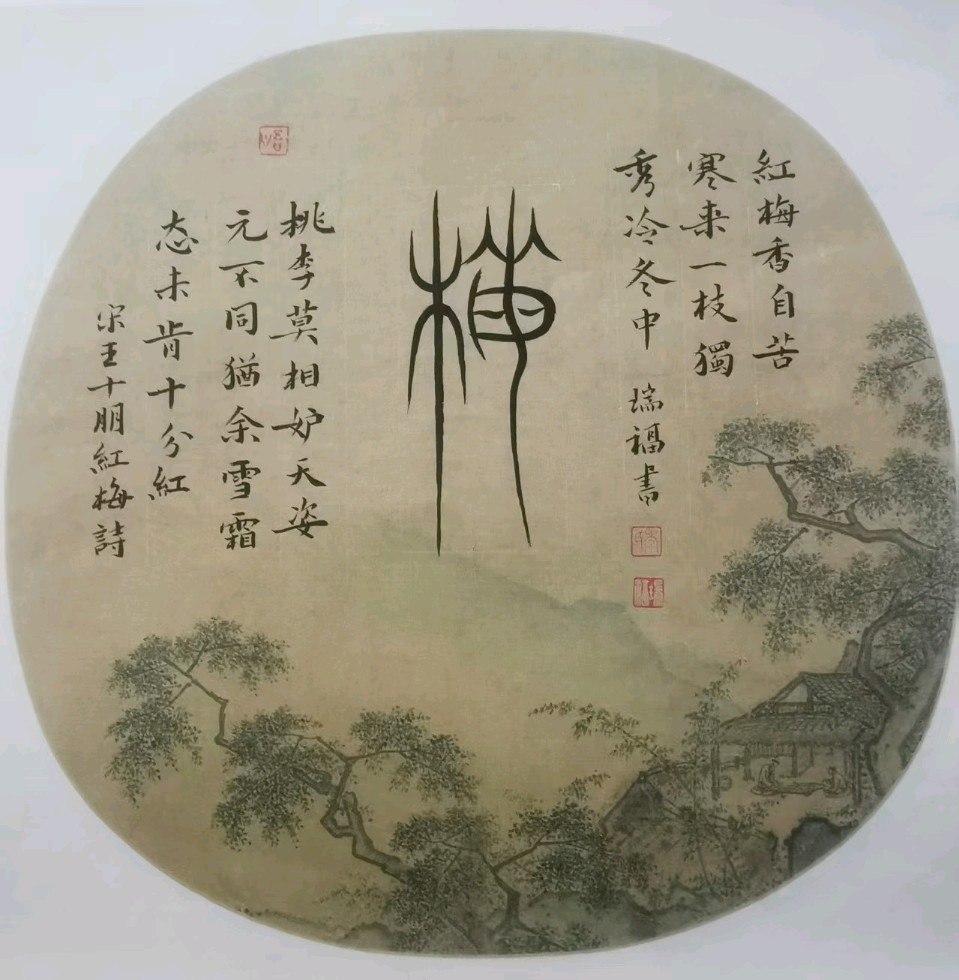 紅梅香自苦
寒来一枝獨
秀冷冬中 瑞福書
梅
桃李莫相妒夭姿
元不同猶余雪霜
态未肯十分紅
宋王十朋紅梅詩